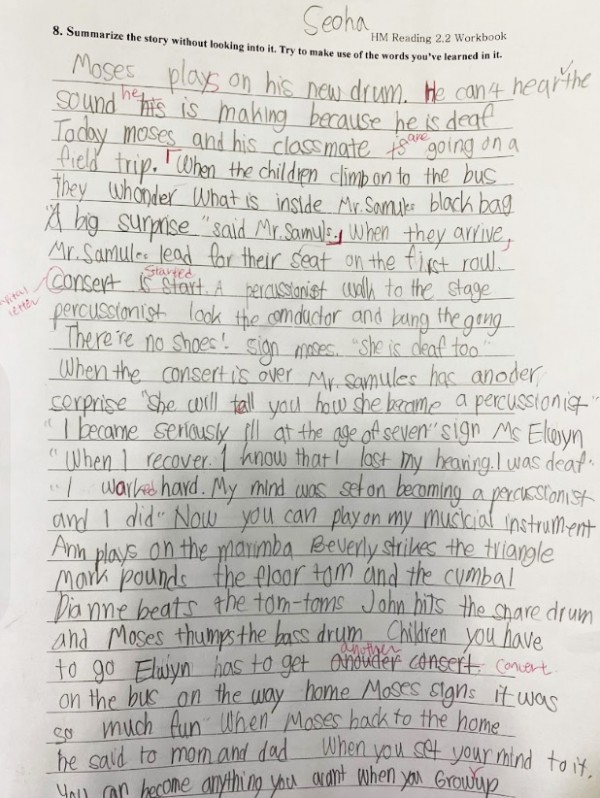 Seoha
HM Reading 2.2 Workbook
8. Summarize the story without looking into it. Try to make use of the words you've learned in it.
Moses plays on his new drum. He can't hear the
sound he his is making because he is deaf
Today moses and his classmate is are going on a
field trip. When the children climb on to the bus
they whonder What is inside Mr. Samules black bag
"A big surprise" said Mr. Samuls. When they arrive,
Mr. Samules lead for their seat on the first roul.
capital letter
Consert is started start. A percussionist walk to the stage
percussionist look the conductor and bang the gong
"There're no shoes! sign moses. "she is deaf too"
When the consert is over Mr. samules has anoder
serprise "she will tell you how she became a percussionist"
"I became seriously ill at the age of seven" sign Ms Elwyn
"When I recover. I know that I lost my hearing. I was deaf"
"I warked hard. My mind was set on becoming a percussionist
and I did" Now you can play on my musicial instrument
Ann plays on the marimba Beverly strikes the triangle
Mark pounds the floor tom and the cymbal
Dianne beats the tom-toms John hits the snare drum
and Moses thumps the bass drum Children you have
to go Elwyn has to get another anouder consert. concert
on the bus on the way home Moses signs it was
so much fun" When Moses back to the home
he said to mom and dad When you set your mind to it.
You can become anything you want when you Grow up